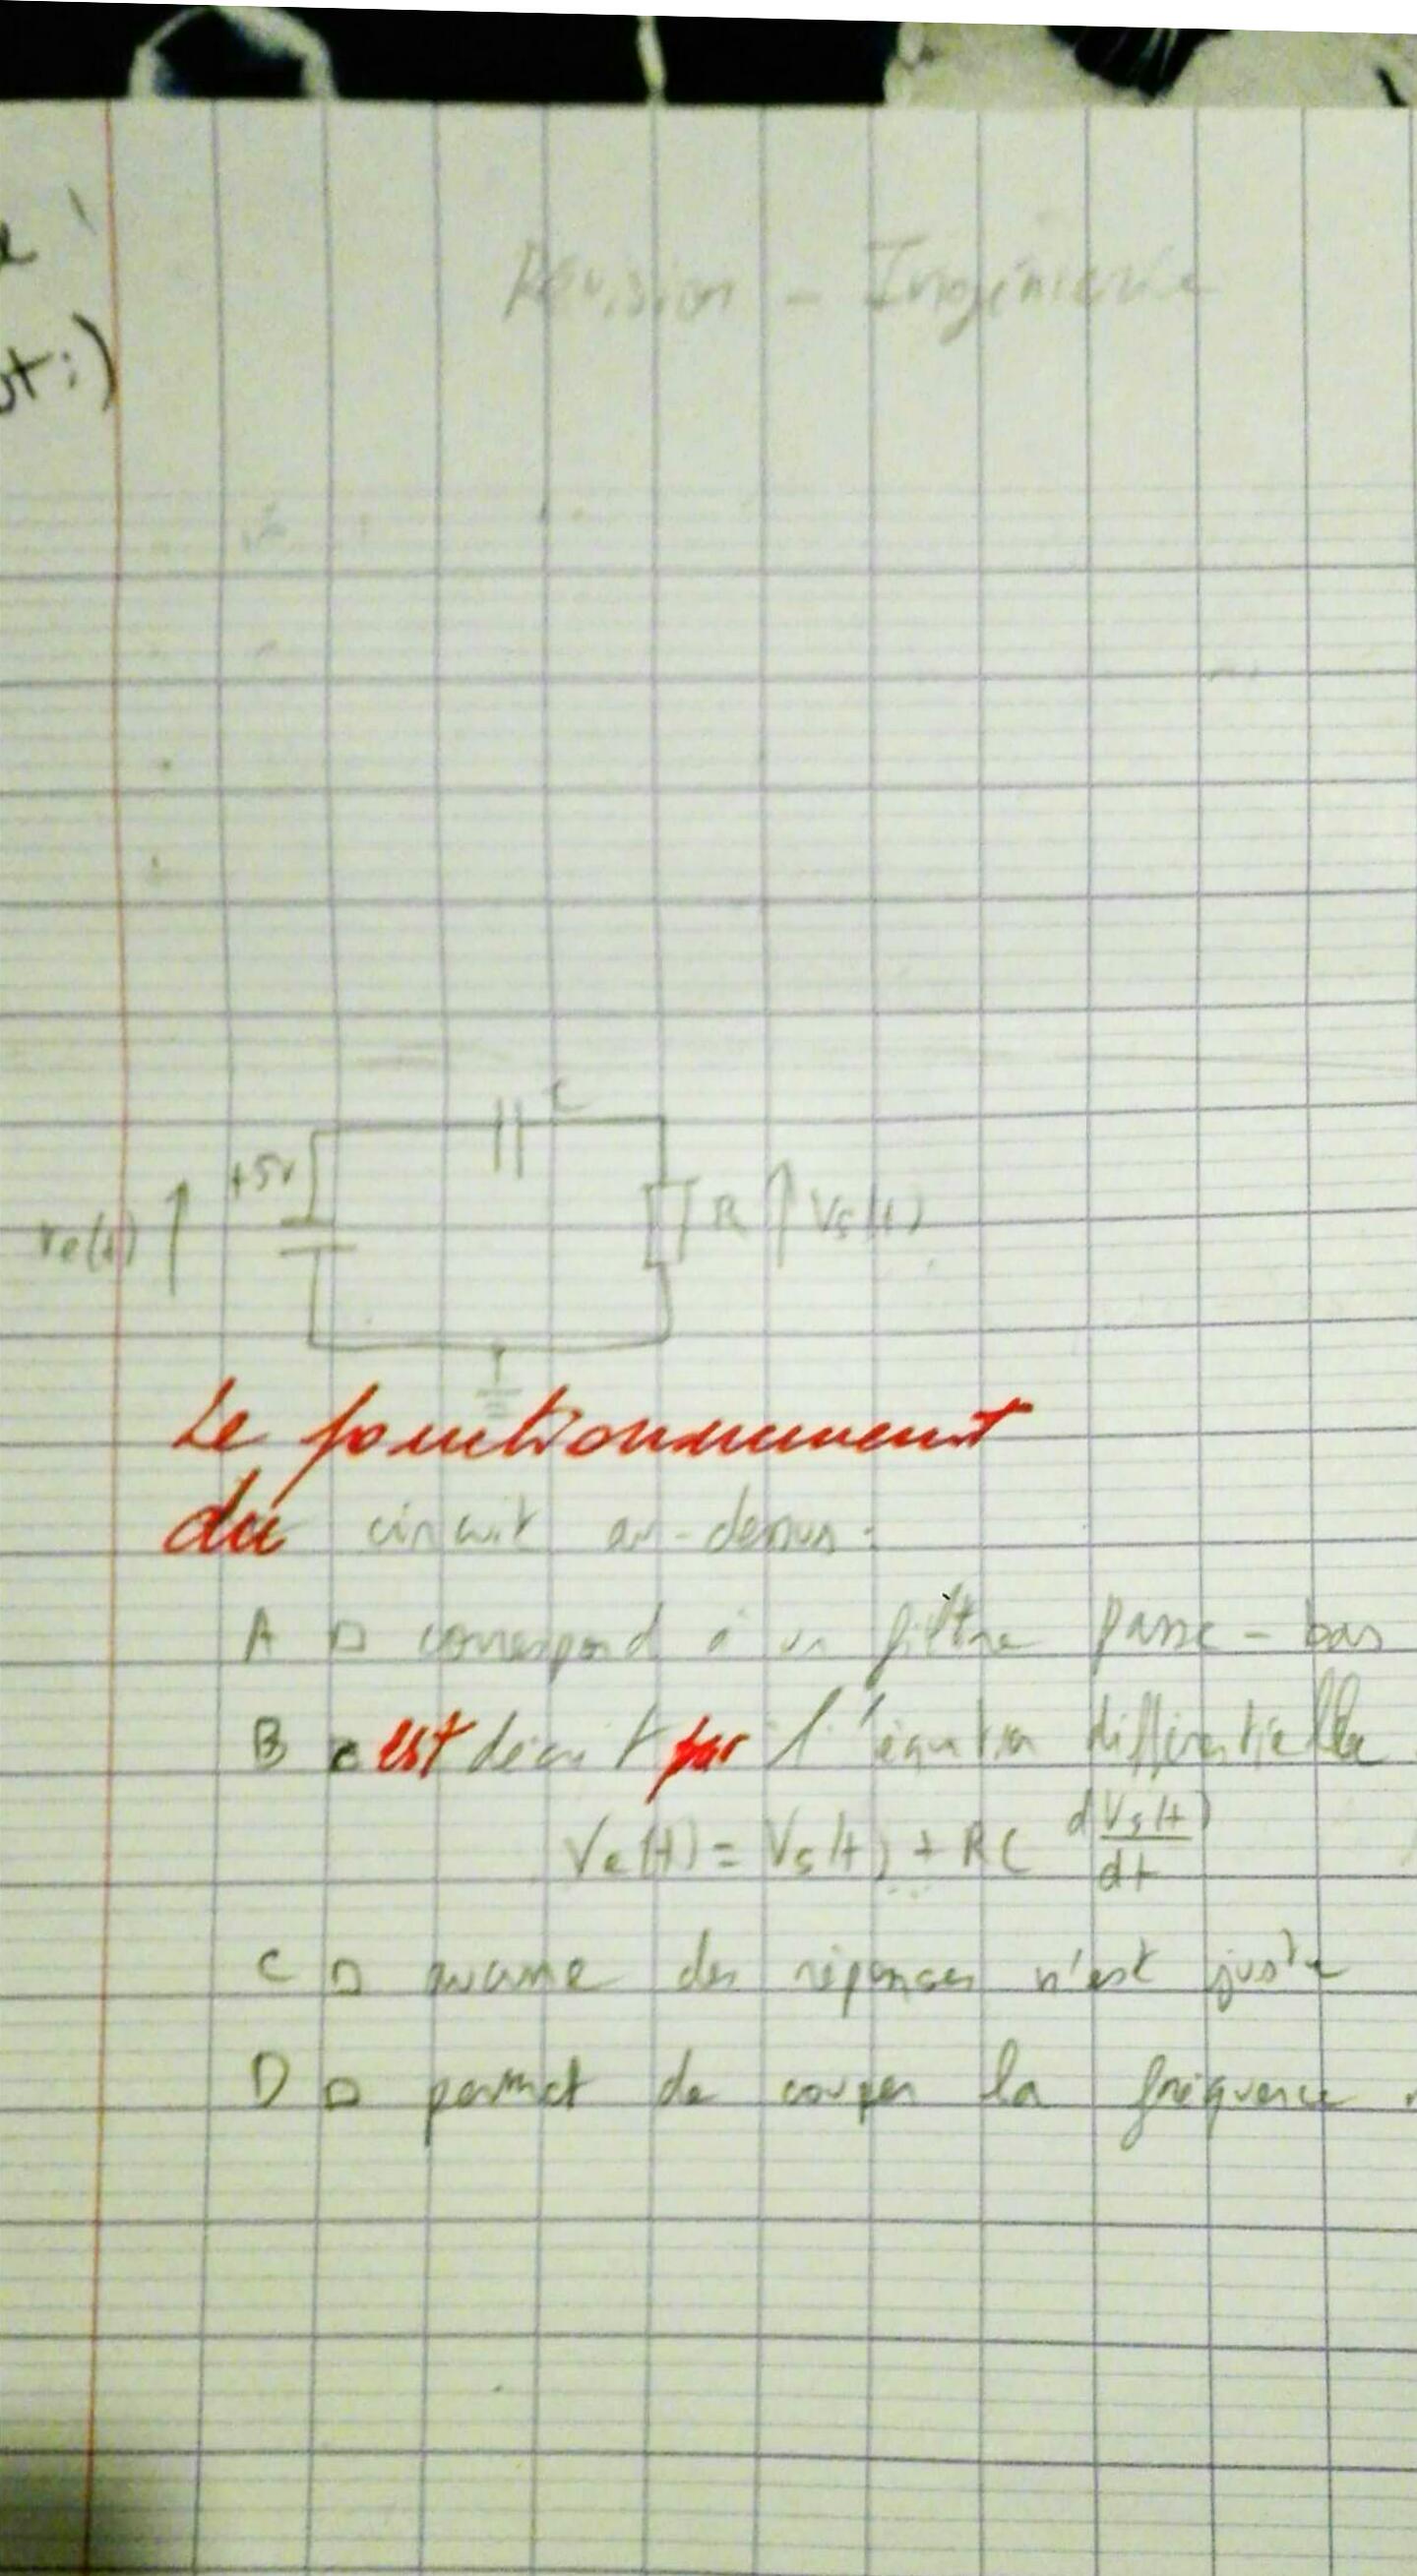 ut:)
Révision - Ingénierie
C
+5V
Ve(t)
R
Vs(t)
Le fonctionnement
du circuit au-dessus :
A □ correspond à un filtre passe-bas
B □ est décrit par l'équation différentielle
Ve(t) = Vs(t) + RC dVs(t)/dt
C □ aucune des réponses n'est juste
D □ permet de couper la fréquence